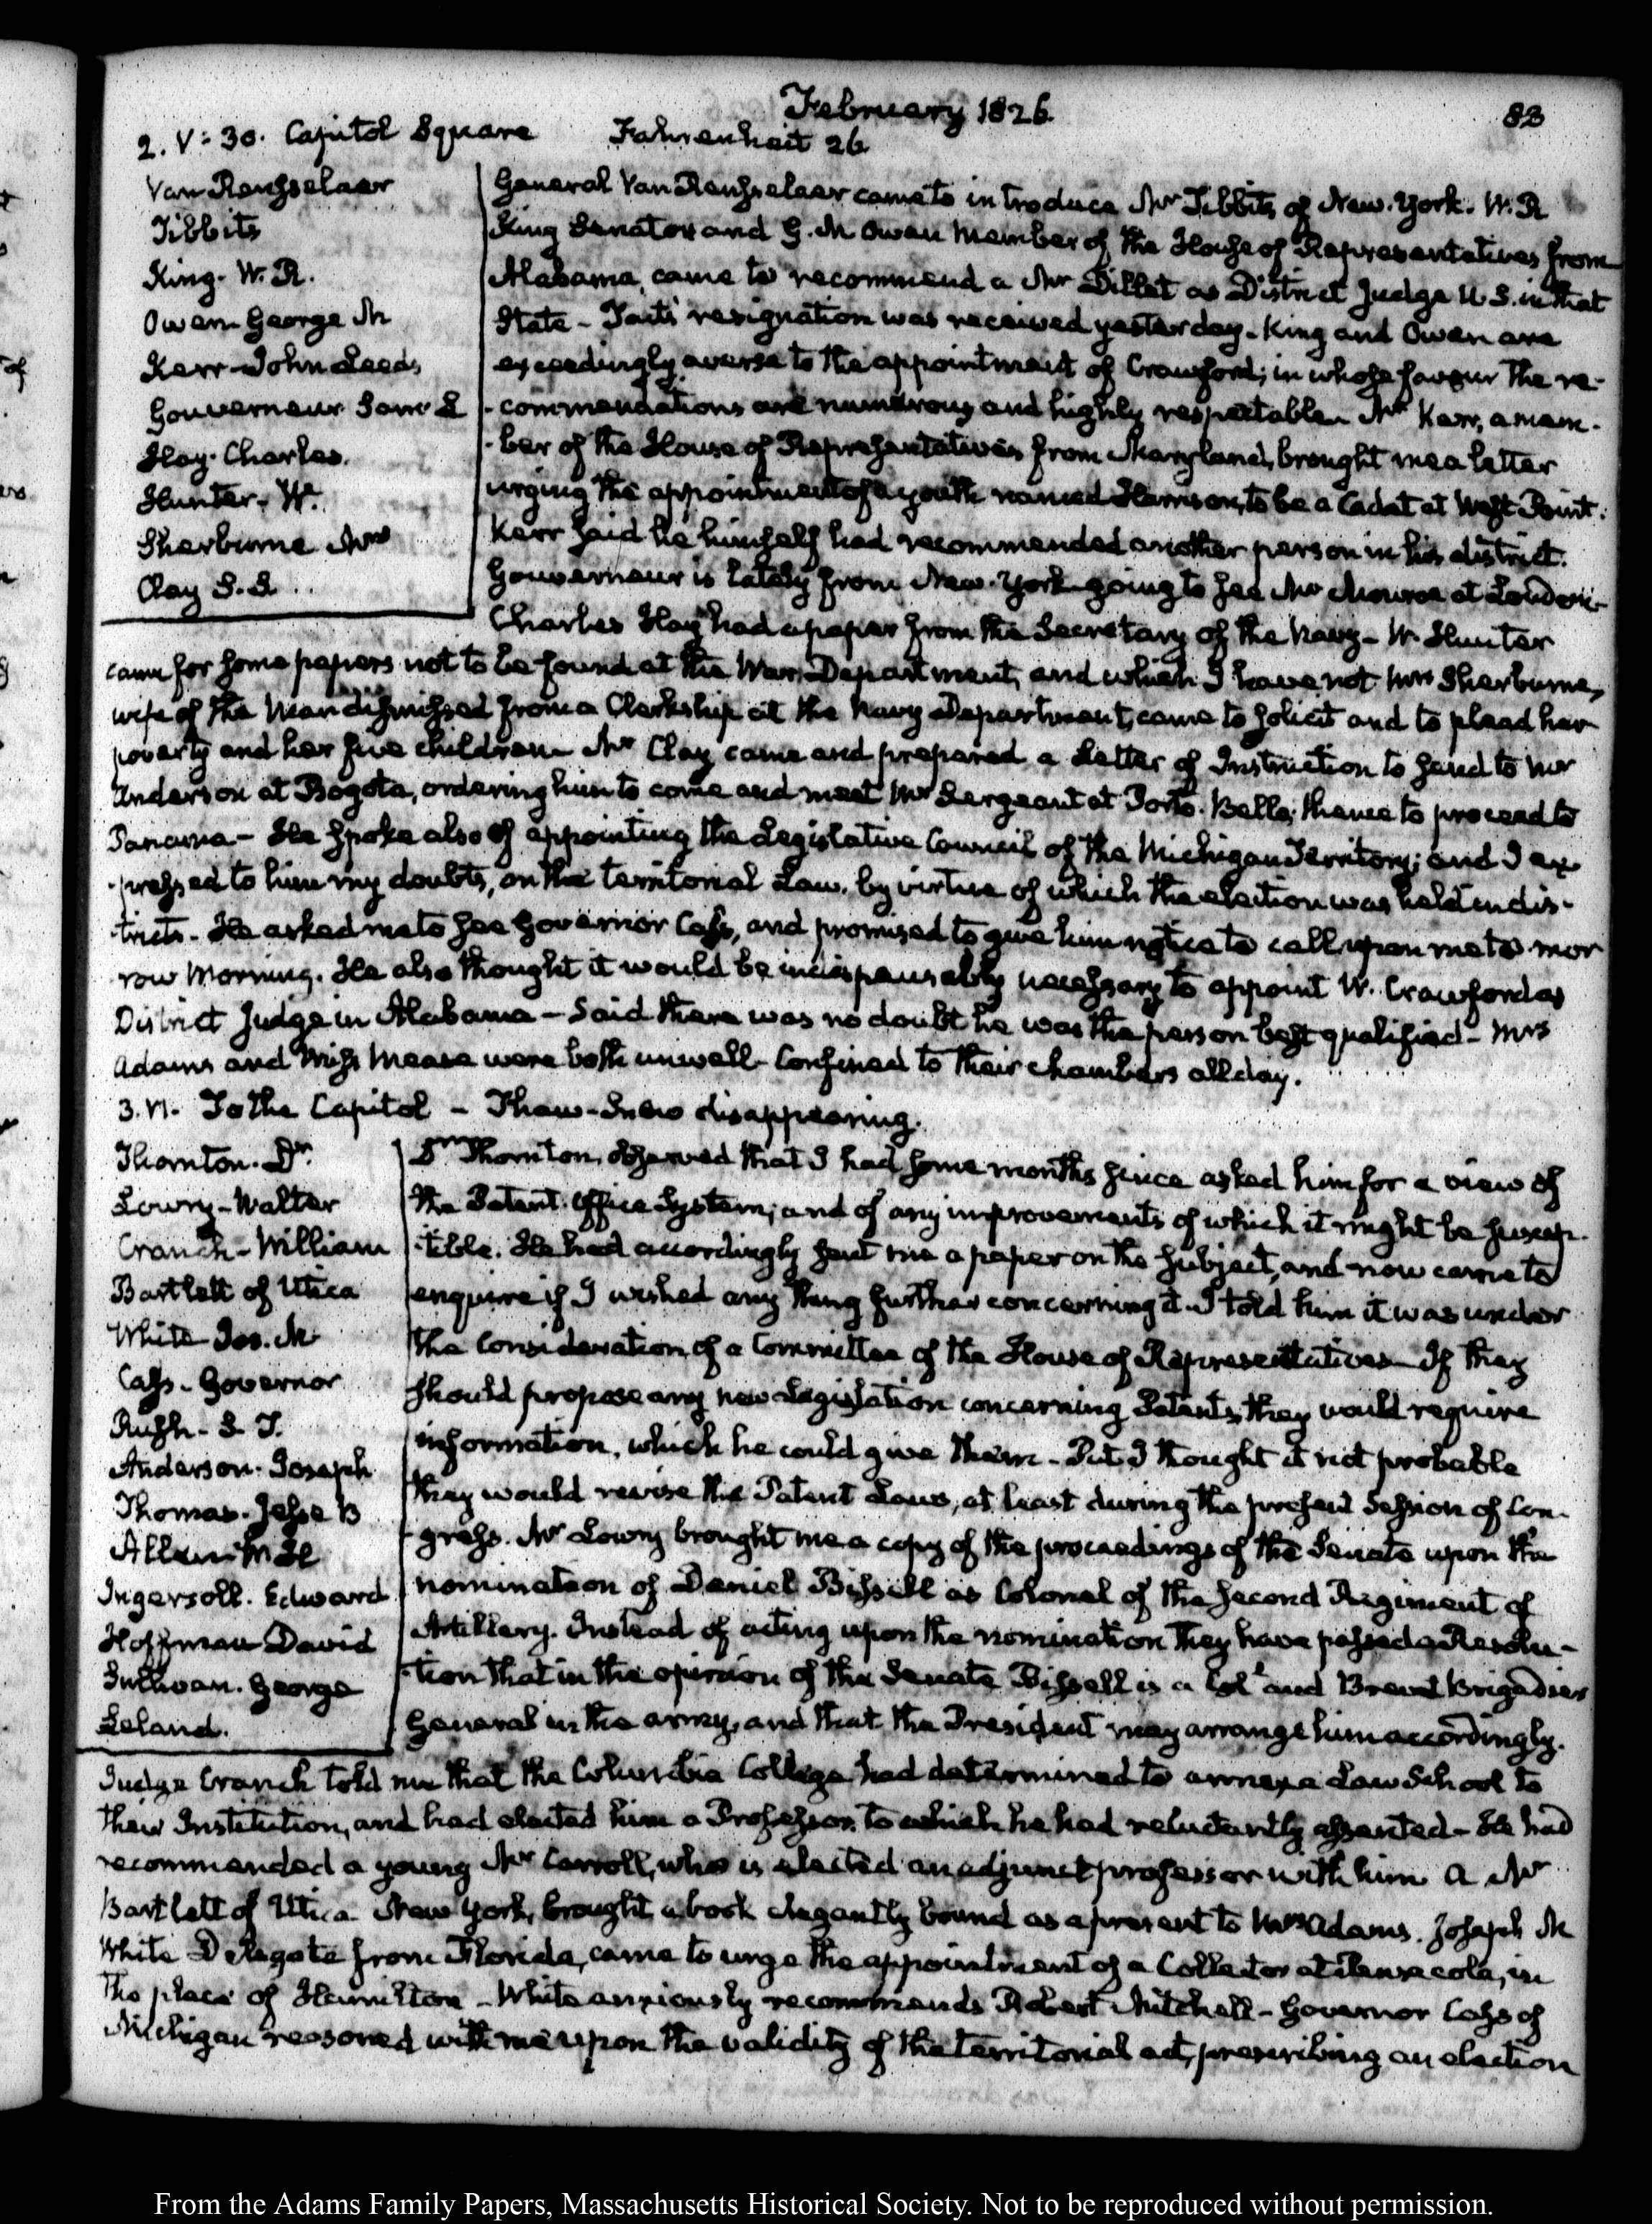 February 1826.
83
2. V: 30. Capitol Square Fahrenheit 26
Van Rensselaer
Tibbits
King. W. R.
Owen George M
Kerr John Leeds
Gouverneur Sam L
Hay. Charles.
Hunter. W.
Sherburne Mrs
Clay S.S.
General Van Rensselaer came to introduce Mr Tibbits of New-York. W. R
King Senator and G. M Owen Member of the House of Representatives from
Alabama, came to recommend a Mr Dillet as District Judge U.S. in that
State - Tait's resignation was received yesterday. King and Owen are
exceedingly averse to the appointment of Crawford; in whose favour the re-
-commendations are numerous and highly respectable. Mr Kerr, a mem-
-ber of the House of Representatives from Maryland, brought me a letter
urging the appointment of a youth named Harrison, to be a Cadet at West Point.
Kerr said he himself had recommended another person in his district.
Gouverneur is lately from New-York going to see Mr Monroe at Loudon-
Charles Hay had a paper from the Secretary of the Navy - W. Hunter
came for some papers not to be found at the War Department, and which I have not. Mrs Sherburne,
wife of the Man dismissed from a Clerkship at the Navy Department, came to solicit and to plead her
poverty and her five children. Mr Clay came and prepared a Letter of Instruction to send to Mr
Anderson at Bogota, ordering him to come and meet Mr Sergeant at Porto. Bello; thence to proceed to
Panama - He spoke also of appointing the Legislative Council of the Michigan Territory; and I ex
-pressed to him my doubts, on the territorial Law, by virtue of which the election was held in dis-
-tricts. He asked me to see Governor Cass, and promised to give him notice to call upon me to mor
row Morning. He also thought it would be indispensably necessary to appoint W. Crawford as
District Judge in Alabama - Said there was no doubt he was the person best qualified - Mrs
Adams and Miss Mease were both unwell - Confined to their chambers all day.
3. VI. To the Capitol - Thaw-Snow disappearing.
Thornton. Dr.
Lowry-Walter
Cranch-William
Bartlett of Utica
White Jos. M
Cass. Governor
Rush. S. T.
Anderson. Joseph
Thomas. Jesse B
Allen
Ingersoll. Edward
Hoffman David
Sullivan. George
Leland.
Dr Thornton, observed that I had some months since asked him for a view of
the Patent. Office System; and of any improvements of which it might be suscep-
-tible. He had accordingly sent me a paper on the subject, and now came to
enquire if I wished any thing further concerning it. I told him it was under
the Consideration of a Committee of the House of Representatives. If they
should propose any new Legislation concerning Patents, they would require
information, which he could give them. But I thought it not probable
they would revise the Patent Laws, at least during the present Session of Con-
-gress. Mr Lowry brought me a copy of the proceedings of the Senate upon the
nomination of Daniel Bissell as Colonel of the second Regiment of
Artillery. Instead of acting upon the nomination they have passed a Resolu-
-tion that in the opinion of the Senate Bissell is a Col. and Brevet Brigadier
General in the army, and that the President may arrange him accordingly.
Judge Cranch told me that the Columbia College had determined to annex a Law School to
their Institution, and had elected him a Professor, to which he had reluctantly assented - He had
recommended a young Mr Carroll, who is elected an adjunct professor with him. A Mr
Bartlett of Utica New York, brought a book elegantly bound as a present to Mrs Adams. Joseph M
White Delegate from Florida, came to urge the appointment of a Collector at Pensacola, in
the place of Hamilton - White anxiously recommends Robert Mitchell - Governor Cass of
Michigan reasoned with me upon the validity of the territorial act, prescribing an election
From the Adams Family Papers, Massachusetts Historical Society. Not to be reproduced without permission.